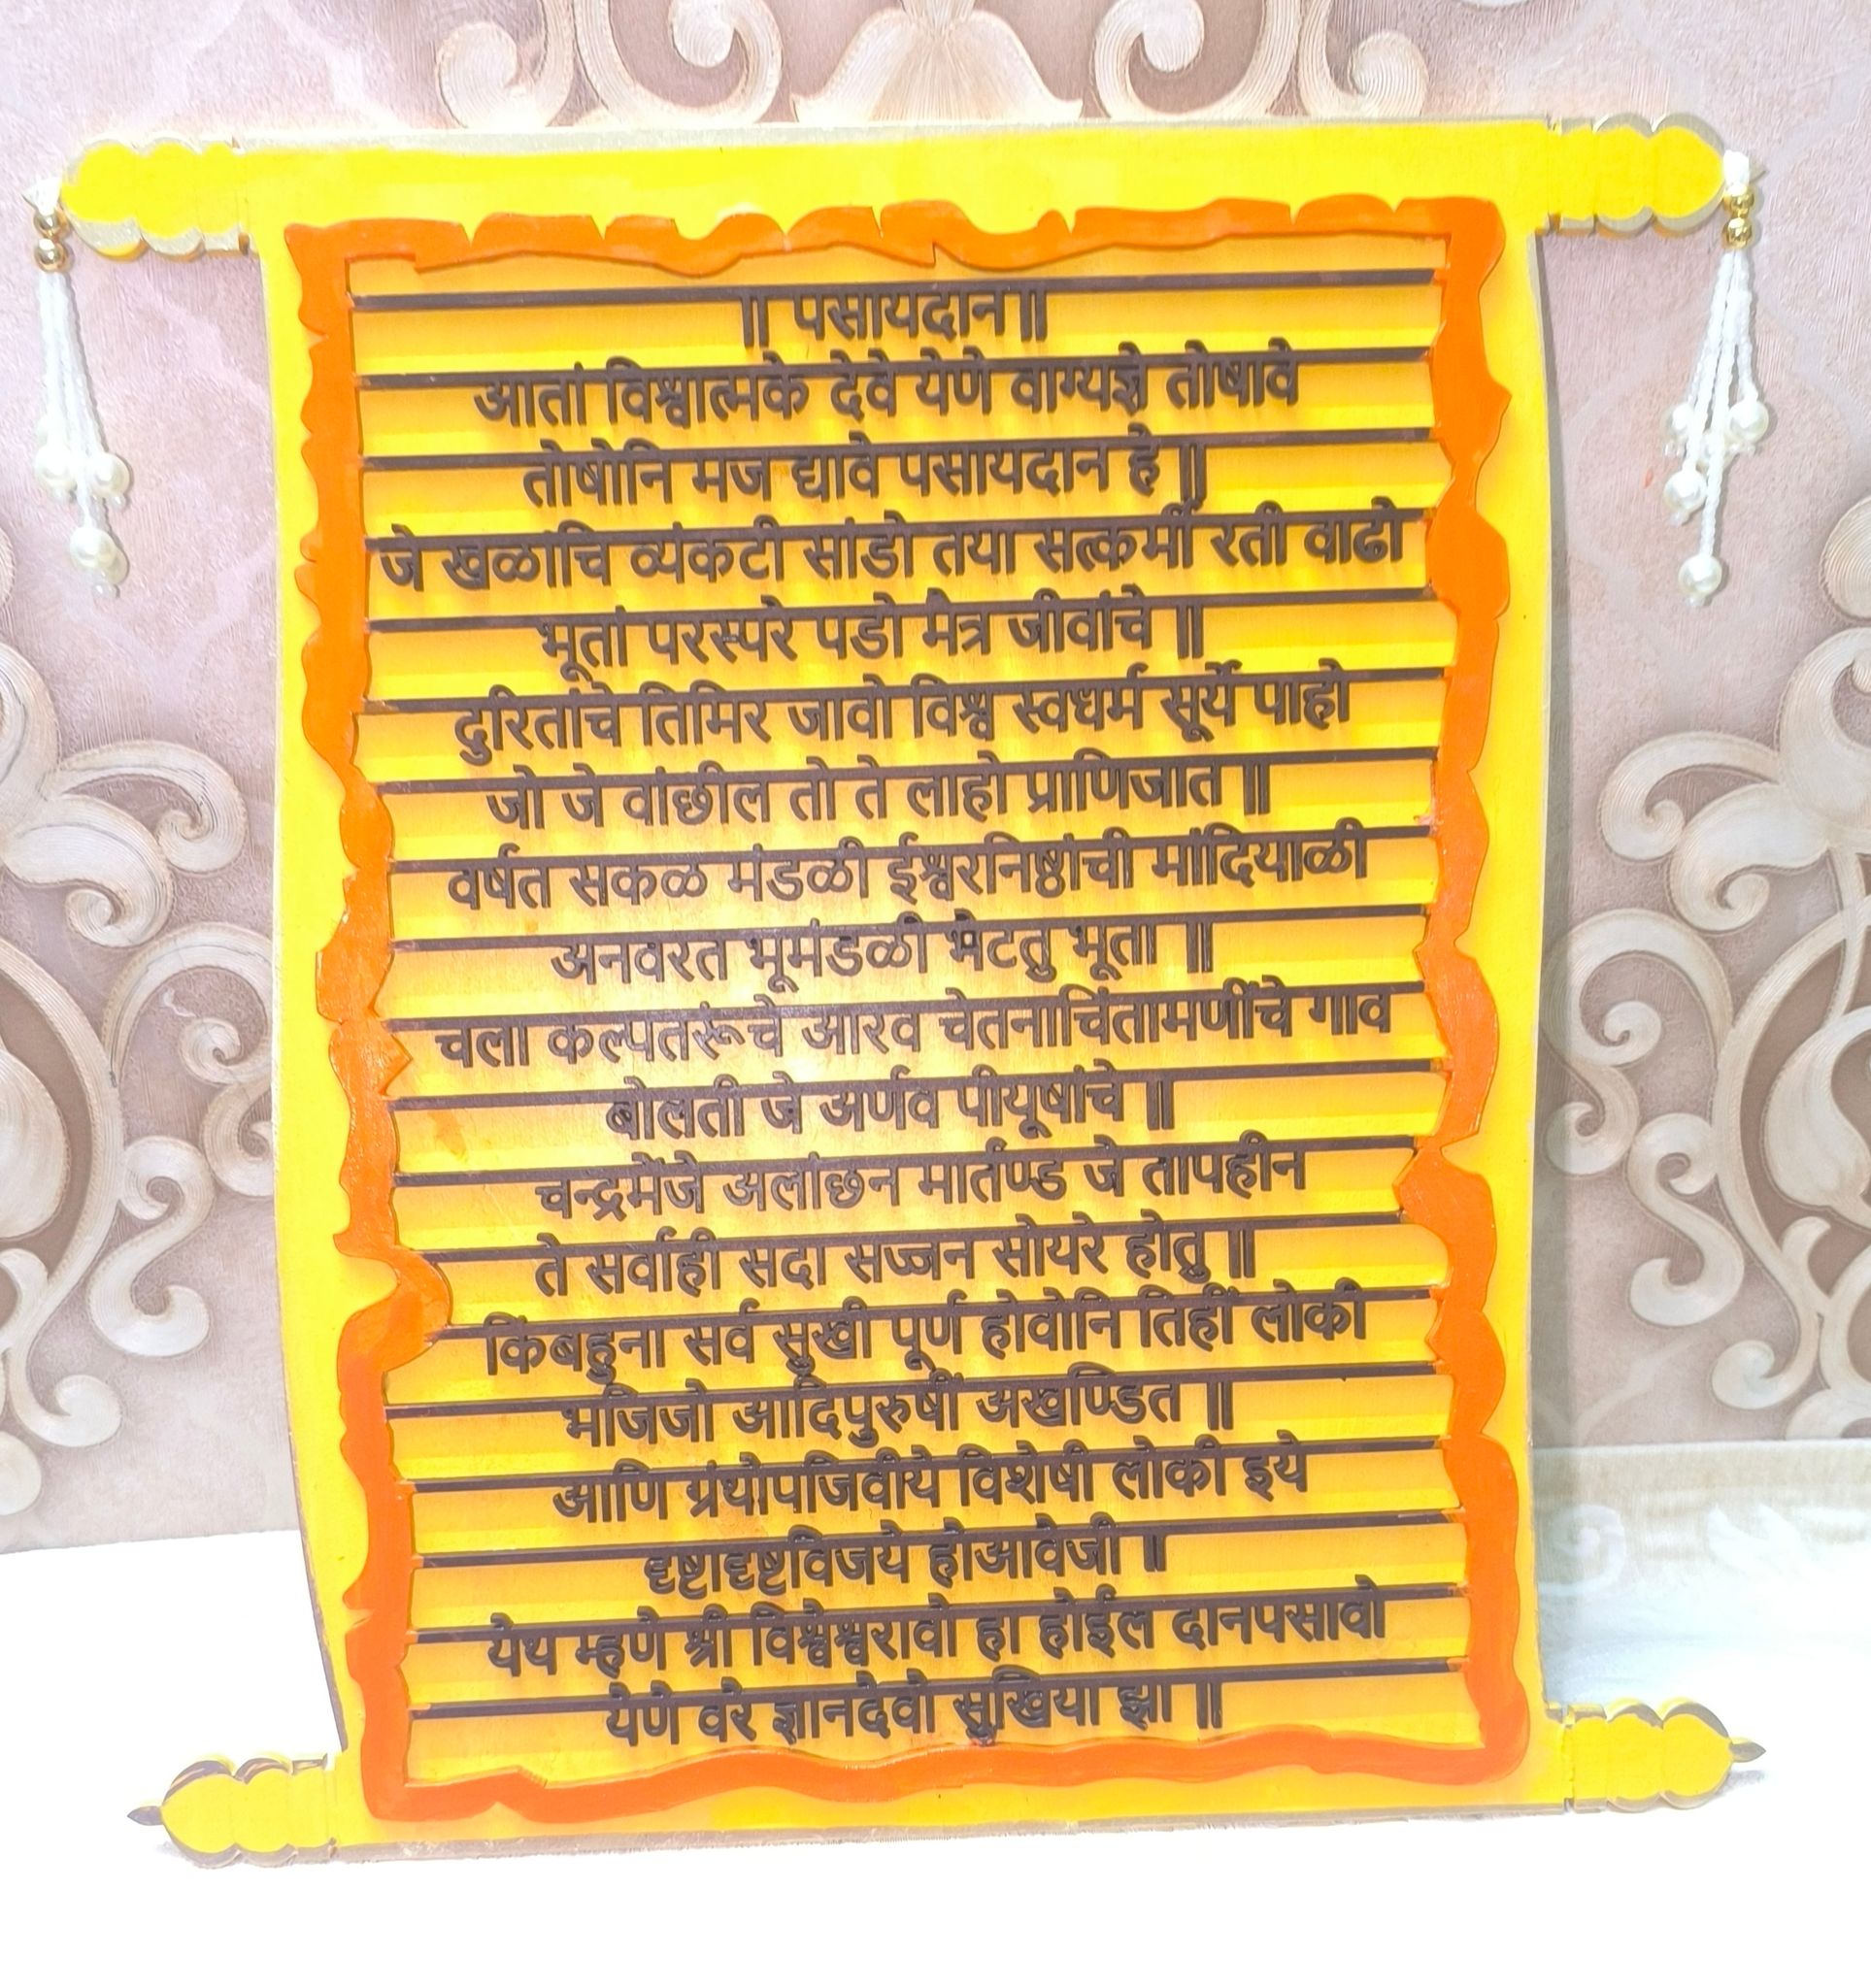 ॥ पसायदान ॥
आतां विश्वात्मके देवे येणे वाग्यज्ञे तोषावे
तोषोनि मज द्यावे पसायदान हे ॥
जे खळांचि व्यंकटी सांडो तया सत्कर्मी रती वाढो
भूतां परस्परे पडो मैत्र जीवांचे ॥
दुरितांचे तिमिर जावो विश्व स्वधर्म सूर्ये पाहो
जो जे वांछील तो ते लाहो प्राणिजात ॥
वर्षत सकळ मंडळी ईश्वरनिष्ठांची मांदियाळी
अनवरत भूमंडळी भेटतु भूतां ॥
चला कल्पतरूंचे आरव चेतनाचिंतामणींचे गाव
बोलती जे अर्णव पीयूषांचे ॥
चन्द्रमेंजे अलांछन मार्तण्ड जे तापहीन
ते सर्वाही सदा सज्जन सोयरे होतु ॥
किंबहुना सर्व सुखी पूर्ण होवोनि तिहीं लोकी
भजिजो आदिपुरुषीं अखण्डित ॥
आणि ग्रंथोपजिवीये विशेषी लोकी इये
दृष्टादृष्टविजये होआवेजी ॥
येथ म्हणे श्री विश्वेश्वरावो हा होईल दानपसावो
येणे वरे ज्ञानदेवो सुखिया झा ॥